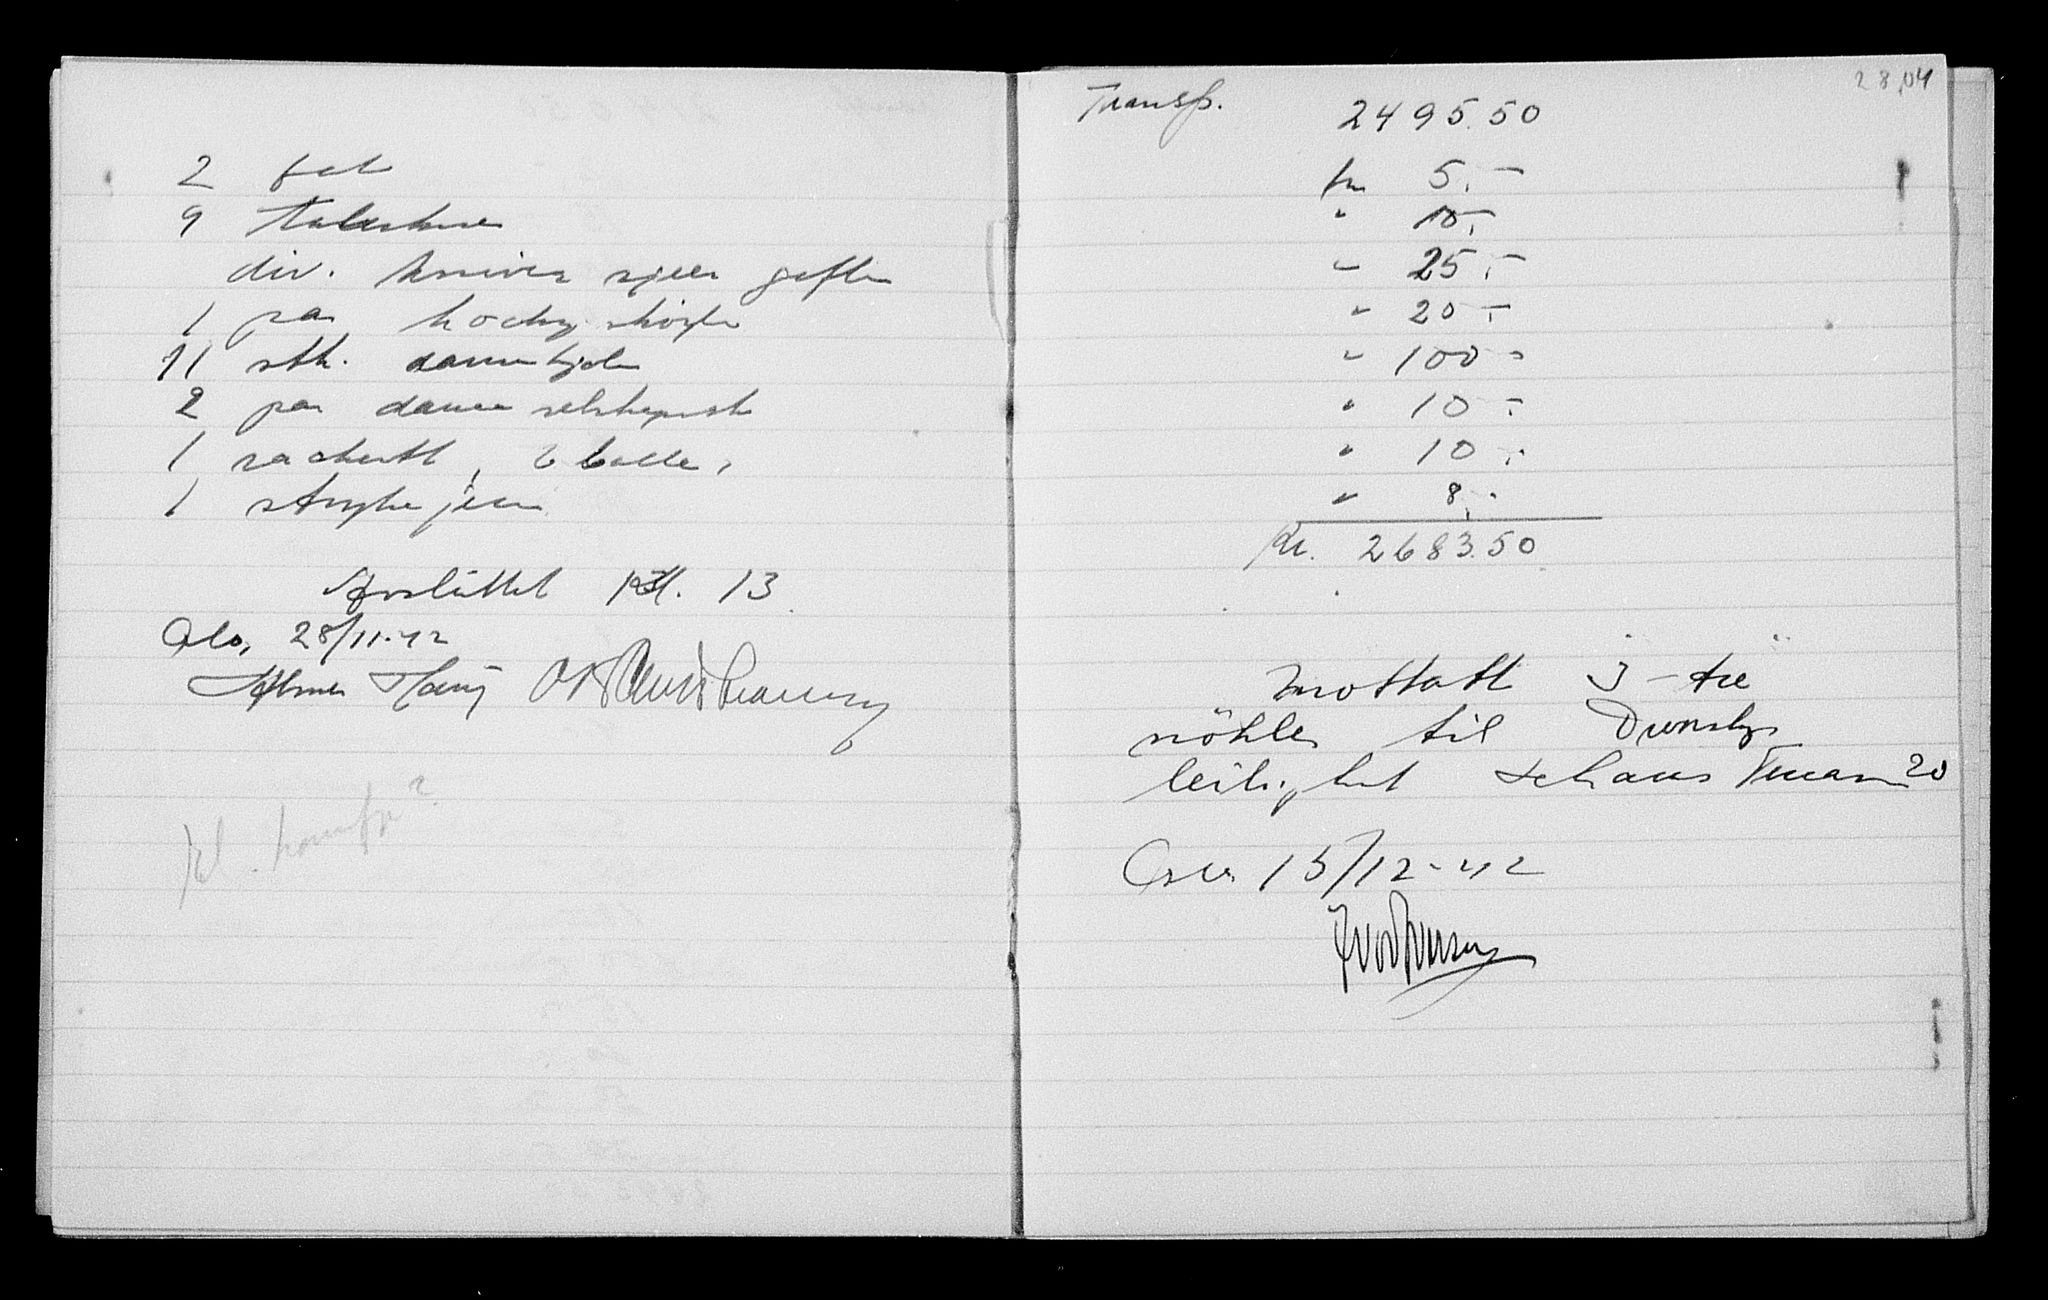 2 fat
9 Talerkner
div. kniver skjeer gafler
1 par hocky støvler
11 stk. damekjoler
2 par dame selskapssk
1 rackertt, 2 balle,
1 strykejern
Avsluttet Kl. 13
Oslo, 28/11-42
kl. komfyr?
28,04
Transp. 2495.50
fra 5.-
" 10,-
" 25.-
" 20.-
" 100-
" 10-
" 10-
" 8,-
Kr. 2683.50
Mottatt 3-tre
nökler til
leilighet 20
Oslo 15/12-42